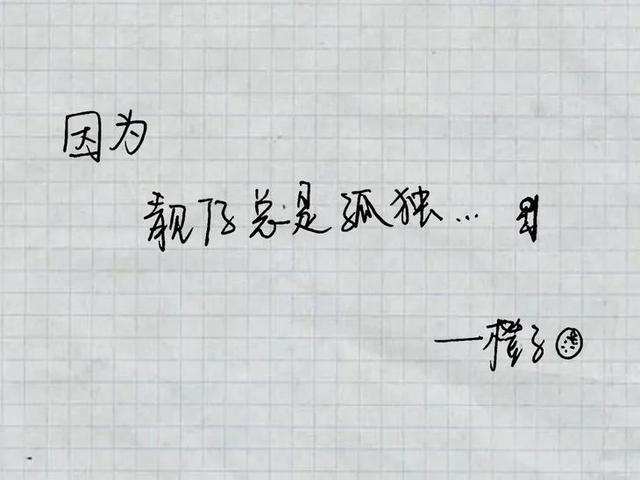 因为
靓仔总是孤独...
—橙子